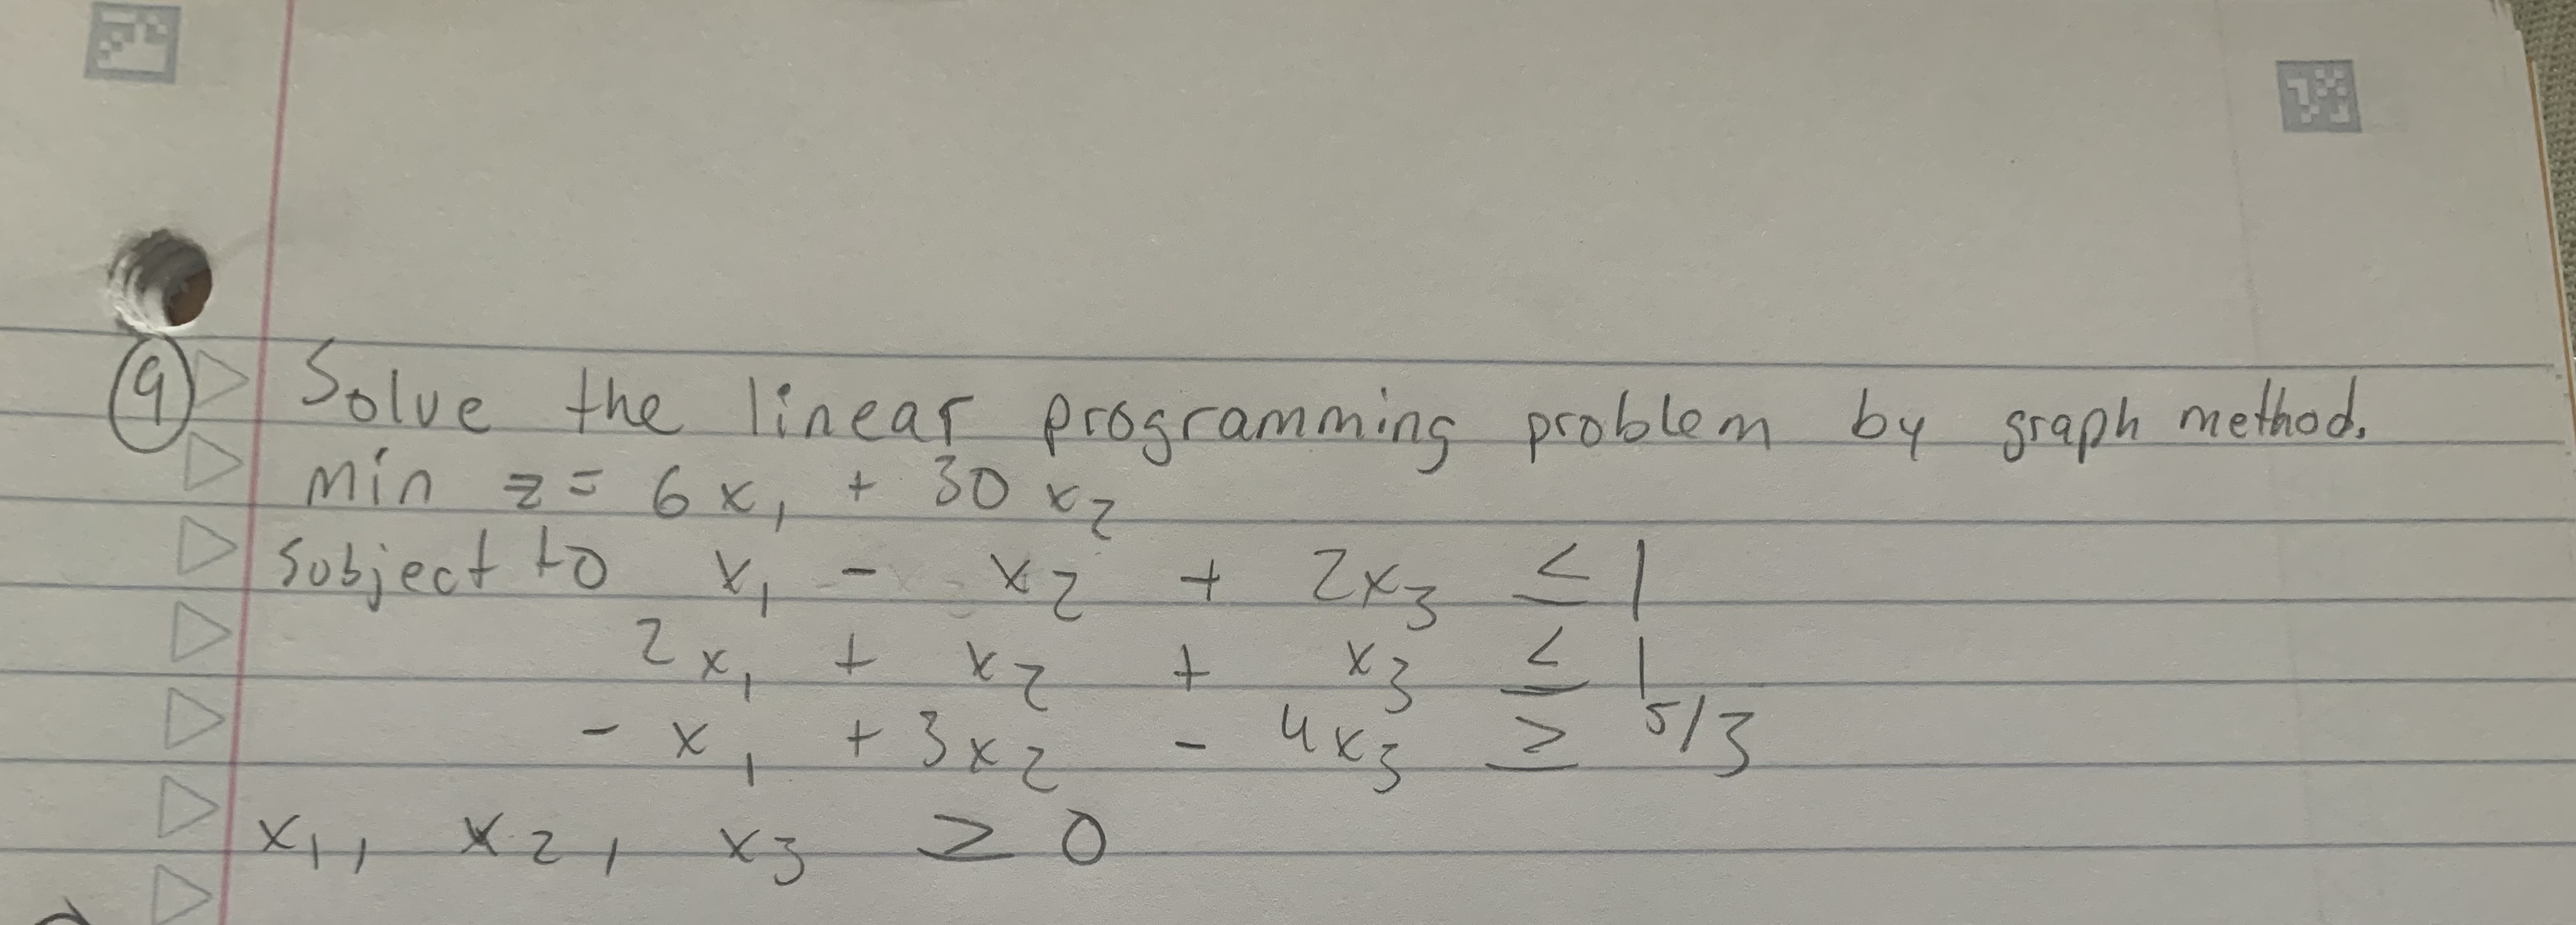 9 Solve the linear programming problem by graph method.
min z = 6x₁ + 30x₂
subject to x₁ - x₂ + 2x₃ ≤ 1
2x₁ + x₂ + x₃ ≤ 1
- x₁ + 3x₂ - 4x₃ ≥ 5/3
x₁, x₂, x₃ ≥ 0